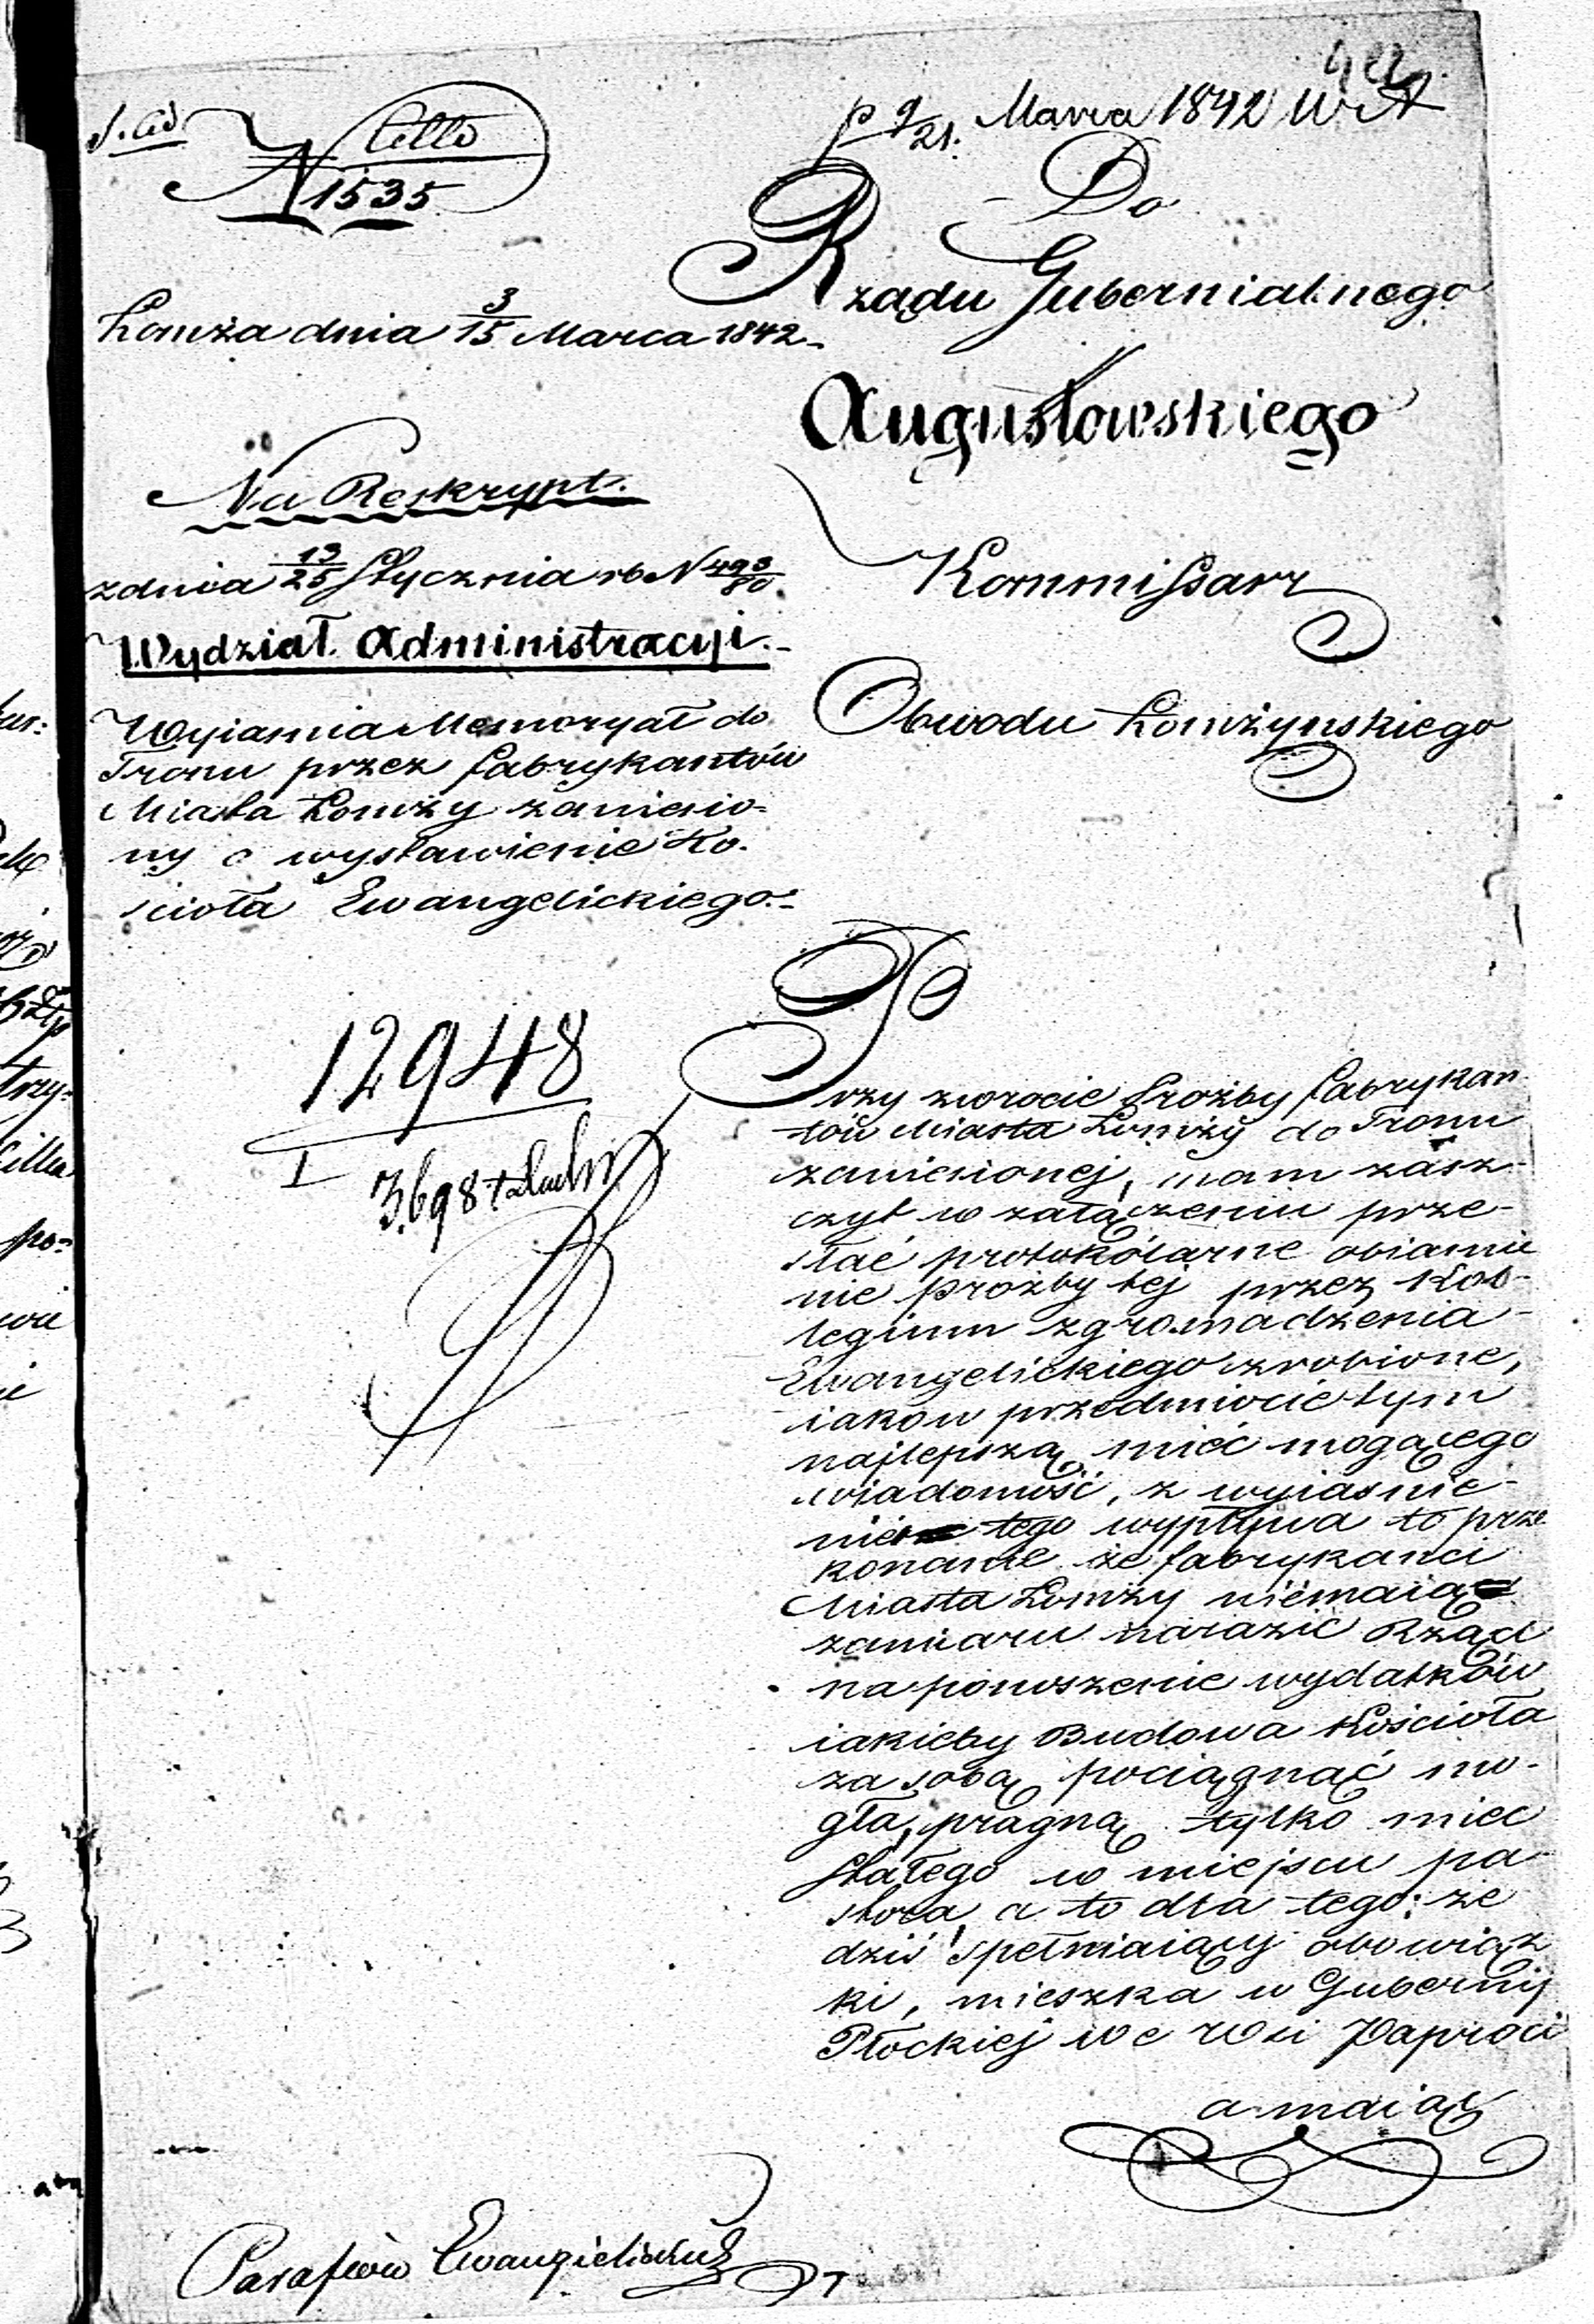 N 1535
p 9/21. Marca 1842 WA
Do
Rządu Gubernialnego
Augustowskiego
Kommissarz
Obwodu Łomżynskiego
Łomża dnia 3/15 Marca 1842.
Na Reskrypt.
zdnia 13/25 Stycznia rb N 493/80.
Wydział Administracyi.
Wyiasnia Memoryał do
Tronu przez fabrykantów
Miasta Łomży zaniesio-
ny o wystawienie Ko-
scioła Ewangelickiego.
12948
I
3.698
Przy zwrocie Prożby fabrykan
tów Miasta Łomży do Tronu
zaniesionej, mam zasz-
czyt w załączeniu prze-
słać protokólarne obiasnie
nie prożby tej przez Kol-
legium zgromadzenia
Ewangelickiego zrobione,
iako w przedmiocie tym
najlepszą mieć mogącego
wiadomość, z wyiasnie-
nie tego wypływa to prze
konanie że fabrykanci
Miasta Łomży niemaią
zamiaru narazić Rząd
na ponoszenie wydatków
iakieby Budowa Kościoła
za sobą pociągnąć mo-
gła, pragną tylko mieć
Stałego w miejscu pa-
stora, a to dla tego: że
dziś spełniaiący obowiąz
ki, mieszka w Gubernij
Płockiej we Wsi Paproci
a maiąc
Parafiów Ewangielickich